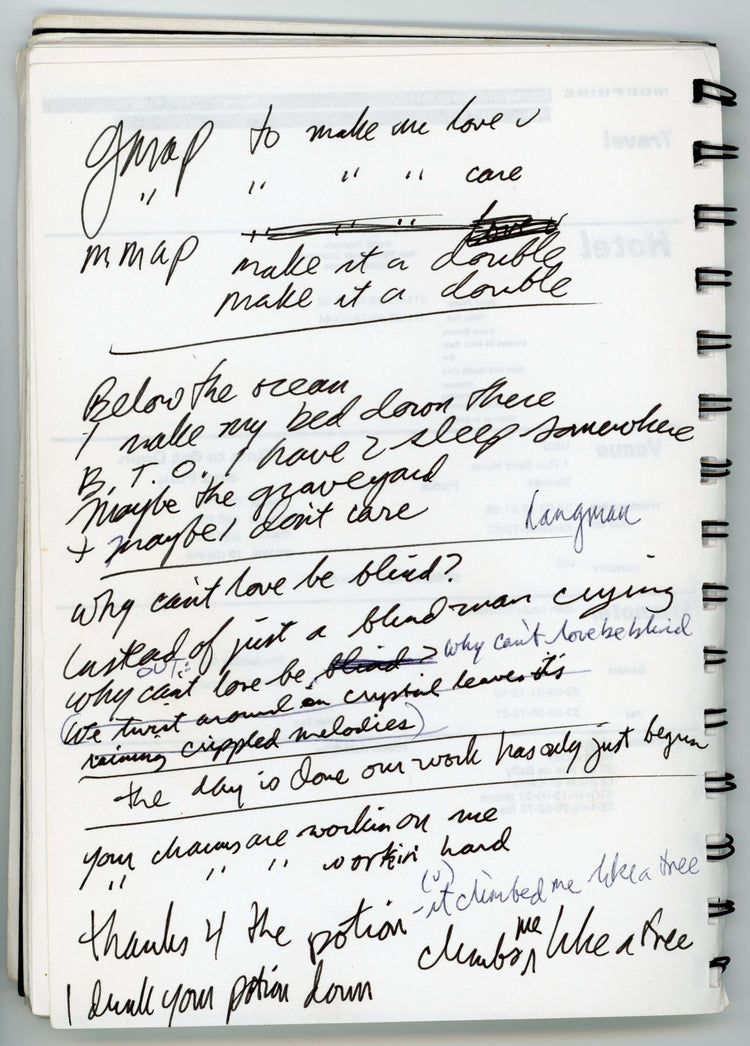 gmap to make me love u
" " " " care
" " "
mmap make it a double
make it a double
Below the ocean
I make my bed down there
B. T. O. I have 2 sleep somewhere
Maybe the graveyard
+ maybe I don't care
hangman
why can't love be blind?
Instead of just a blind man crying
OUT:
why can't love be blind? why can't love be blind
(we twist around in crystal leaves it's
raining crippled melodies)
the day is done our work has only just begun
your charms are workin on me
" " " workin hard
(u)
thanks 4 the potion - it climbed me like a tree
climbs me like a tree
I drank your potion down
MORPHINE
Travel
Hotel
Venue